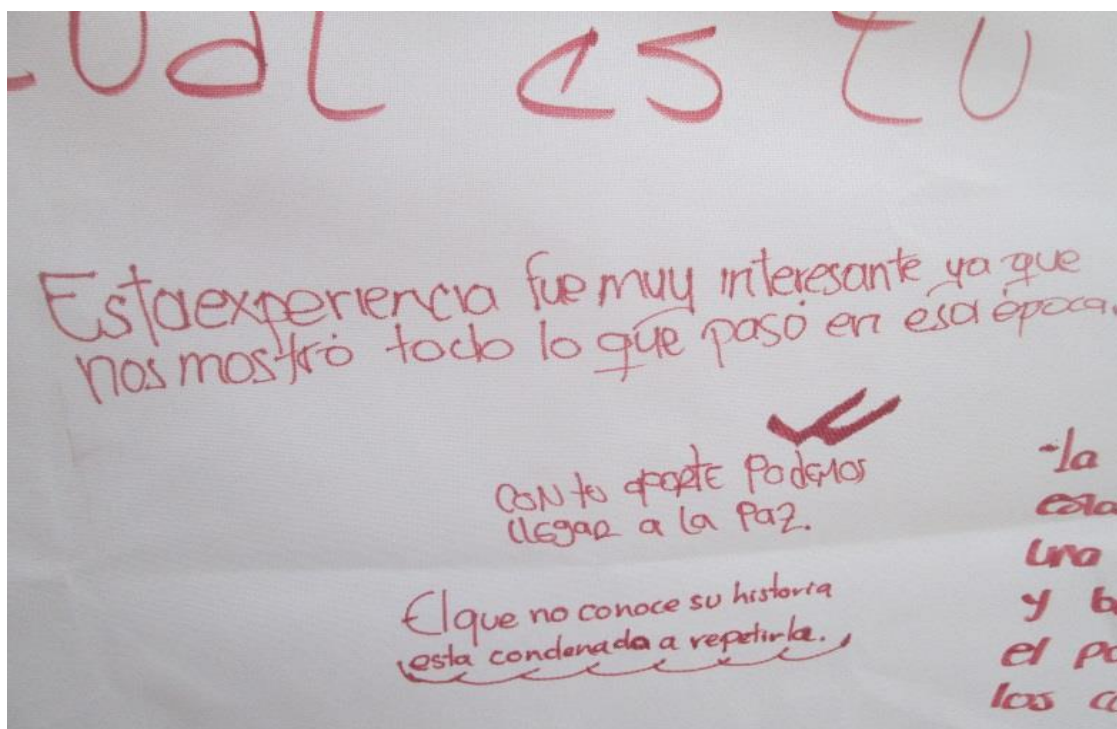 es tu
Esta experiencia fue muy interesante ya que
nos mostró todo lo que pasó en esa época.
CON tu aporte Podemos
llegar a la Paz.
El que no conoce su historia
esta condenado a repetirla.
-la
una
y
el
los